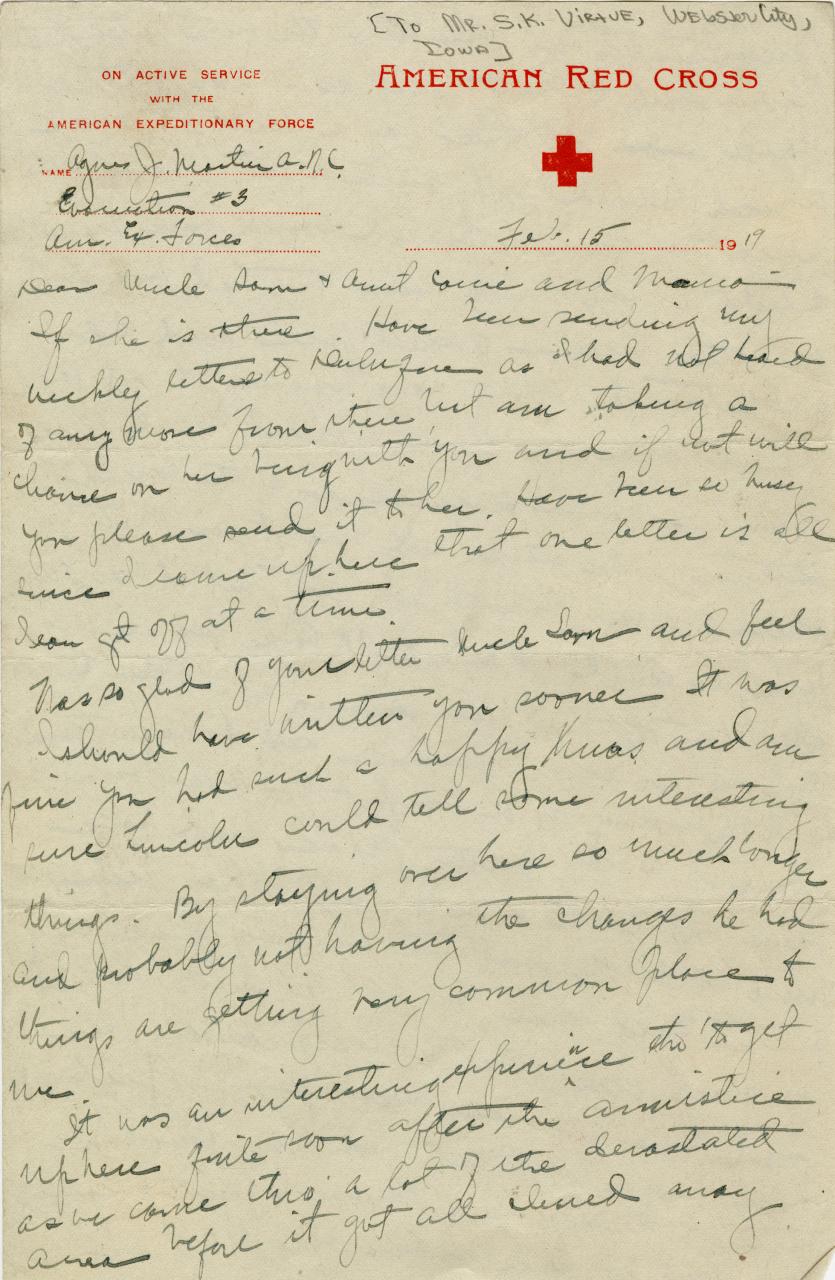 [To Mr. S.K. Virtue, Webster City,
Iowa]
ON ACTIVE SERVICE
WITH THE
AMERICAN EXPEDITIONARY FORCE
AMERICAN RED CROSS
NAME Agnes J. Martin A.N.C.
Evacuation #3
Am. Ex. Forces
Feb. 15 1919
Dear Uncle Sam & Aunt and Mama
If she is there. Have been sending my
weekly letters to as I had not heard
of any move from there but am taking a
chance on her being with you and if not will
you please send it to her. Have been so busy
since I came up here that one letter is all
I can get off at a time.
Was so glad of your letter Uncle Sam and feel
I should have written you sooner It was
fine you had such a happy Xmas and am
sure Lincoln could tell some interesting
things. By staying over here so much longer
and probably not having the changes he had
things are getting very common place to
me.
It was an interesting experience tho' to get
up here quite soon after the armistice
as we came thru a lot of the devastated
area before it got all cleaned away